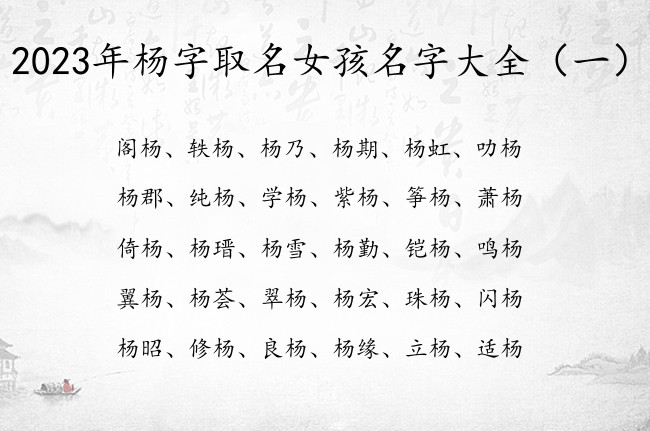 2023年杨字取名女孩名字大全（一）
阁杨、轶杨、杨乃、杨期、杨虹、叻杨
杨郡、纯杨、学杨、紫杨、筝杨、萧杨
倚杨、杨瑨、杨雪、杨勤、铠杨、鸣杨
翼杨、杨荟、翠杨、杨宏、珠杨、闪杨
杨昭、修杨、良杨、杨缘、立杨、适杨